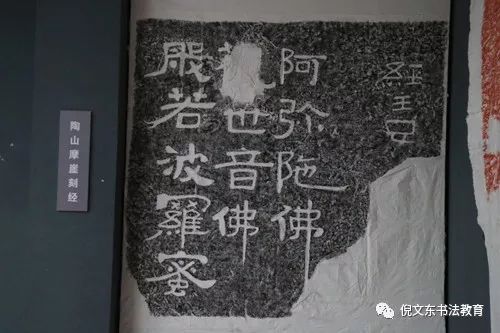 經主
阿弥陁佛
觀世音佛
般若波羅蜜
陶山摩崖刻经
倪文东书法教育